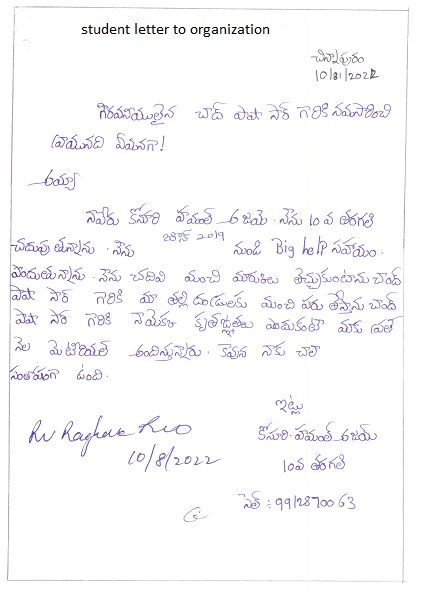 student letter to organization
చిన్నాపురం
10/8/2022
గౌరవనీయులైన చాంద్ పాషా సార్ గారికి నమస్కరించి
వ్రాయునది ఏమనగా!
అయ్యా
నాపేరు కోసూరి హేమంత్ అజయ్. నేను 10వ తరగతి
చదువుతున్నాను. నేను జూన్ 2019 నుండి Big help సహాయం.
పొందుతున్నాను. నేను చదివి మంచి మార్కులు తెచ్చుకుంటాను చాంద్
పాషా సార్ గారికి మా తల్లి దండ్రులకు మంచి పేరు తెస్తాను చాంద్
పాషా సార్ గారికి నాయొక్క కృతజ్ఞతలు మాకు ప్రతీ
నెల మెటీరియల్ అందిస్తున్నారు. కావున నాకు చాలా
సంతోషంగా ఉంది.
ఇట్లు
కోసూరి. హేమంత్ అజయ్
10వ తరగతి
సెల్ : 9912870063
Rv Raghava Rao
10/8/2022